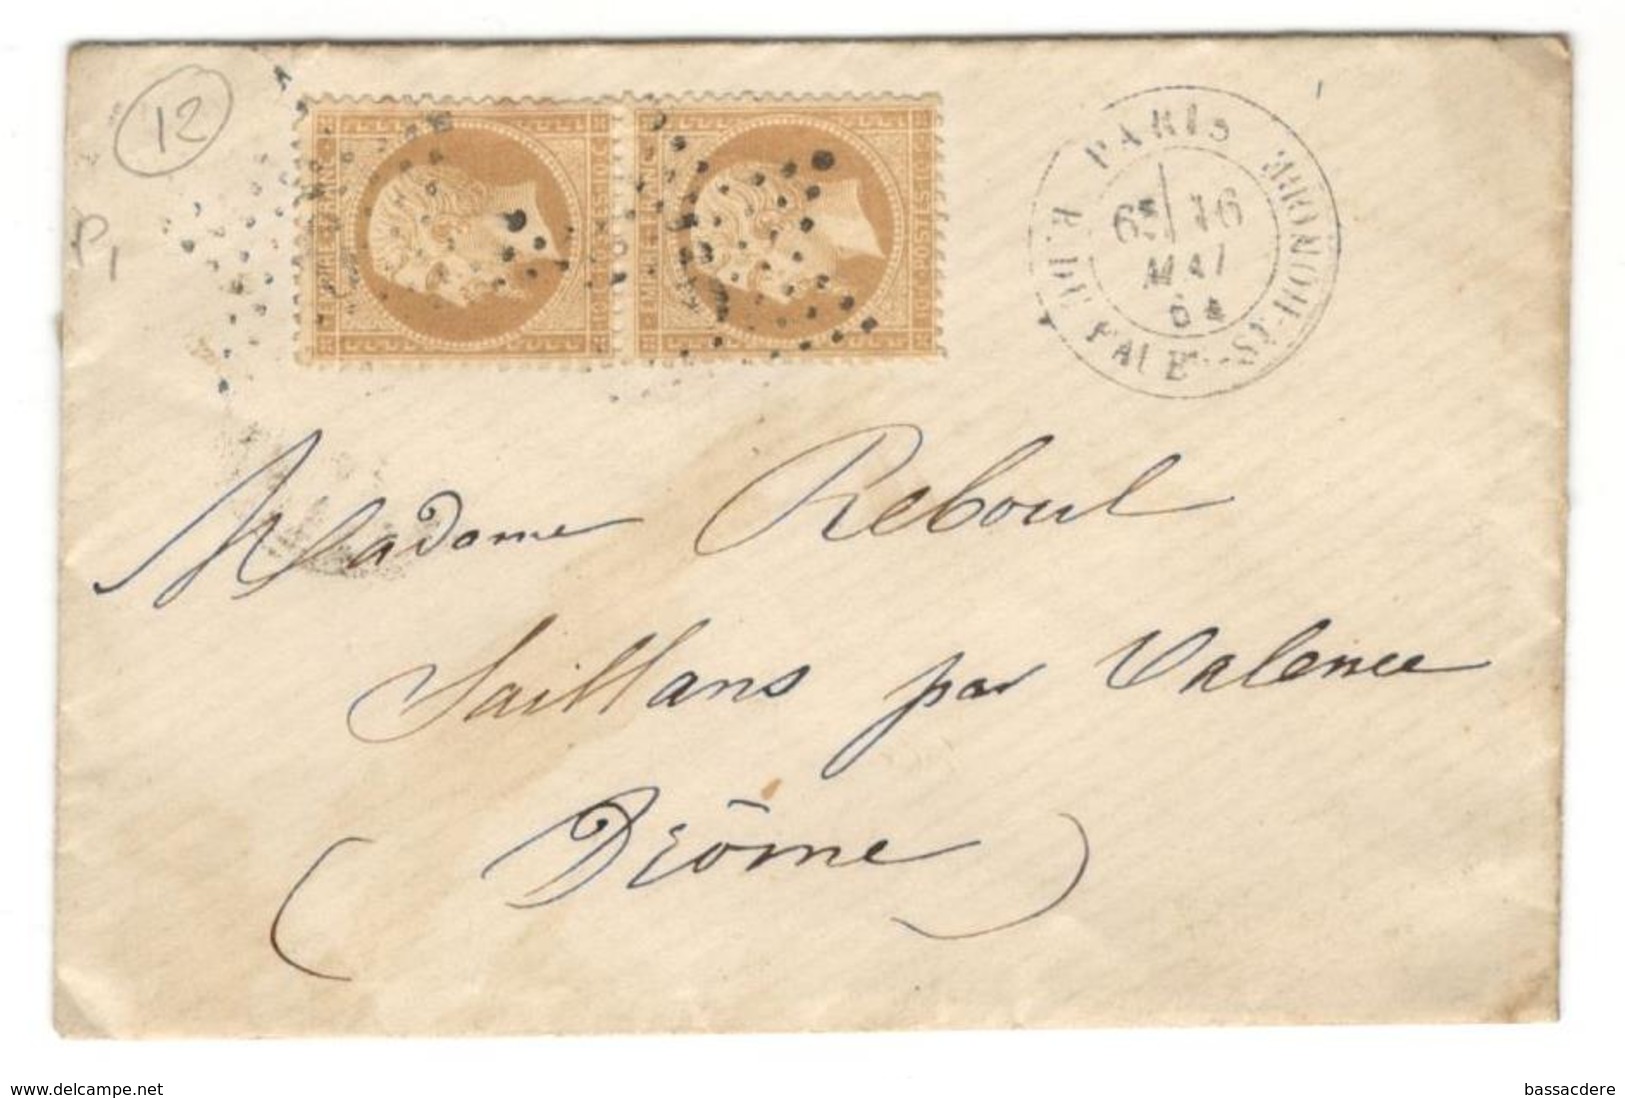 12
P1
EMPIRE FRANC
10 C. POSTES 10 C.
EMPIRE FRANC
10 C. POSTES 10 C.
PARIS
6E 16
MAI
64
R. DU FAUBG ST-HONORE
Madame Reboul
Saillans par Valence
(Drôme)
www.delcampe.net
bassacdere